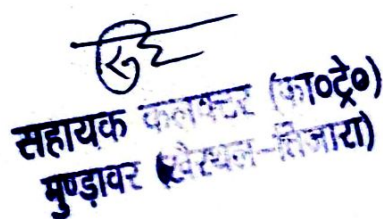 सहायक कलक्टर (फा०ट्रे०)
मुण्ड़ावर (खैरथल–तिजारा)